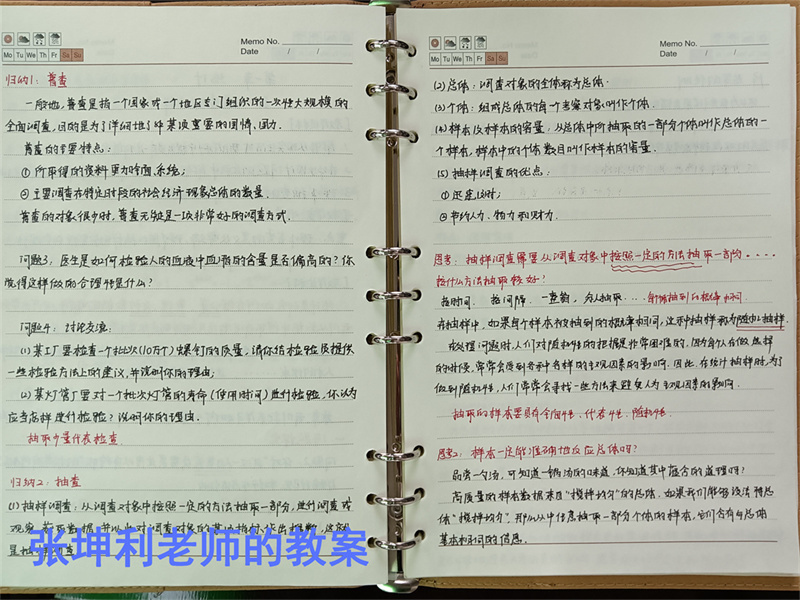 Memo No.
Date / /
Mo Tu We Th Fr Sa Su
归纳1：普查
一般地，普查是指一个国家或一个地区专门组织的一次性大规模的
全面调查，目的是为了详细地了解某项重要的国情、国力.
普查的主要特点：
① 所取得的资料更为全面、系统；
② 主要调查在特定时段的社会经济现象总体的数量.
普查的对象很少时，普查无疑是一项非常好的调查方式.
问题3：医生是如何检验人的血液中血脂的含量是否偏高的？你
觉得这样做的合理性是什么？
问题4：讨论交流：
(1) 某工厂要检查一个批次(10万个)螺钉的质量，请你给检验员提供
一些检验方法上的建议，并说明你的理由；
(2) 某灯管厂要对一个批次灯管的寿命(使用时间)进行检验，你认为
应当怎样进行检验？说明你的理由.
抽取少量代表检查
归纳2：抽查
(1) 抽样调查：从调查对象中按照一定的方法抽取一部分，进行调查或
观察
张坤利老师的教案
Memo No.
Date / /
Mo Tu We Th Fr Sa Su
(2) 总体：调查对象的全体称为总体.
(3) 个体：组成总体的每一个考察对象叫作个体.
(4) 样本及样本的容量：从总体中所抽取的一部分个体叫作总体的一
个样本，样本中的个体数目叫作样本的容量.
(5) 抽样调查的优点：
① 迅速、及时；
② 节约人力、物力和财力.
思考：抽样调查需要从调查对象中按照一定的方法抽取一部分....
按什么方法抽取较好？
按时间、按间隔、
在抽样中，如果每个样本被抽到的概率相同，这种抽样称为随机抽样.
在处理问题时，人们对随机性的把握是非常困难的，因为每个人在做选择
的时候，常常会受到各种各样的主观因素的影响. 因此，在统计抽样时，为了
做到随机性，人们常常会寻找一些方法来避免人为主观因素的影响.
抽取的样本要具有全面性、代表性、随机性.
思考2：样本一定能准确地反应总体吗？
品尝一勺汤，可知道一锅汤的味道，你知道其中蕴含的道理吗？
高质量的样本数据来自“搅拌均匀”的总体. 如果我们能够设法将总
体“搅拌均匀”，那么从中任意抽取一部分个体的样本，它们含有与总体
基本相同的信息.